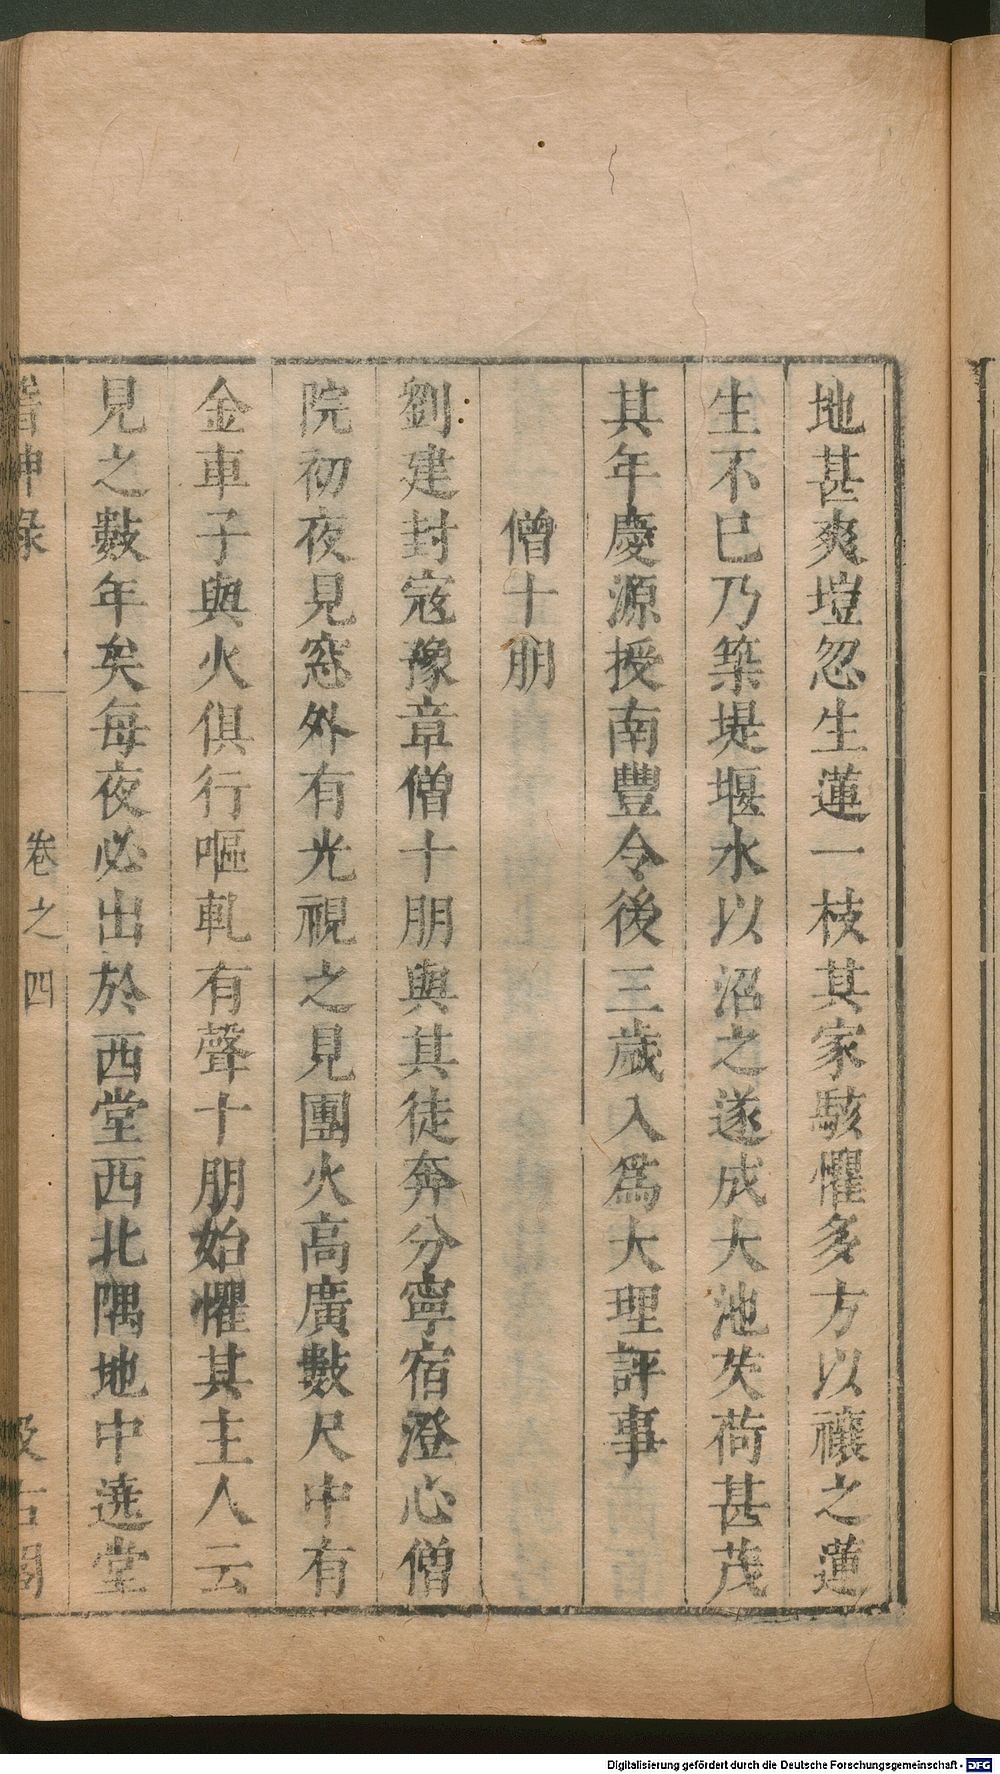 地甚爽塏忽生蓮一枝其家駭懼多方以禳之蓮
生不已乃築堤堰水以沼之遂成大池芡荷甚茂
其年慶源授南豐令後三歲入爲大理評事
僧十朋
劉建封寇豫章僧十朋與其徒奔分寧宿澄心僧
院初夜見窓外有光視之見團火高廣數尺中有
金車子與火俱行嘔軋有聲十朋始懼其主人云
見之數年矣每夜必出於西堂西北隅地中遶堂
稽神錄
卷之四
汲古閣
Digitalisierung gefördert durch die Deutsche Forschungsgemeinschaft - DFG